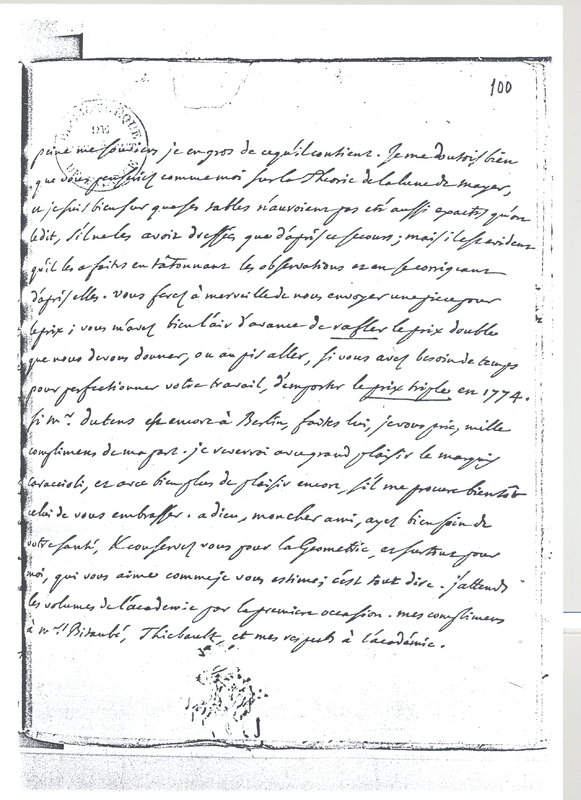 100
BIBLIOTHEQUE DE
peine me souviens je en gros de ce qu'il contient. Je me doutois bien
que vous penseriez comme moi sur la Theorie de la lune de mayer,
et je suis bien sur que ses tables n'auroient pas eté aussi exactes qu'on
le dit, s'il ne les avoit dressées que d'après ce secours; mais il est evident
qu'il les a faites en tâtonnant les observations et en se corrigeant
d'après elles. vous ferez à merveille de nous envoyer une piece pour
le prix; vous m'avez bien l'air d'avance de rafler le prix double
que nous devons donner, ou au pis aller, si vous avez besoin de temps
pour perfectionner votre travail, d'emporter le prix triple en 1774.
Si Mr. Dutens est encore à Berlin, faites lui, je vous prie, mille
complimens de ma part. je reverrai avec grand plaisir le marquis
Caraccioli, et avec bien plus de plaisir encore, s'il me procure bientôt
celui de vous embrasser. adieu, mon cher ami, ayez bien soin de
votre santé, & conservez vous pour la Geometrie, et surtout pour
moi, qui vous aime comme je vous estime; c'est tout dire. j'attends
les volumes de l'academie par la premiere occasion. mes complimens
à mrs Bitaubé, Thiebault, et mes respects à l'académie.